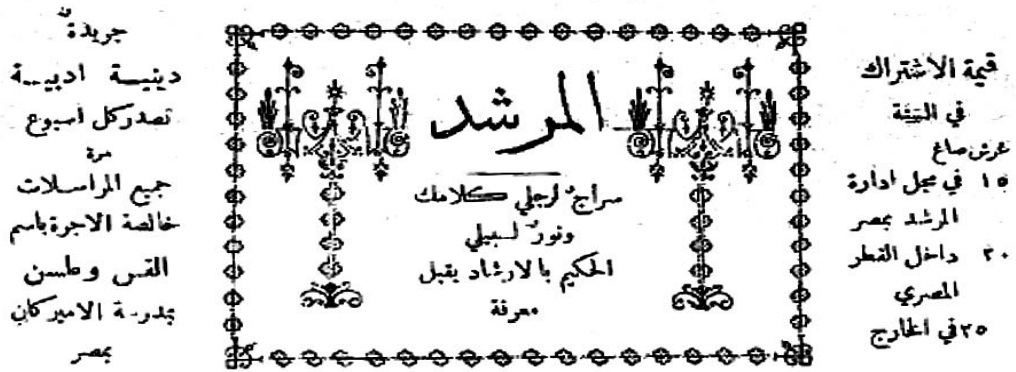 قيمة الاشتراك
في السنة
غرش صاغ
١٥ في محل ادارة
المرشد بمصر
٢٠ داخل القطر
المصري
٢٥ في الخارج
المرشد
سراجٌ لرجلي كلامك
ونورٌ لسبيلي
الحكيم بالارشاد يقبل
معرفة
جريدة
دينية ادبية
تصدر كل اسبوع
مرة
جميع المراسلات
خالصة الاجرة باسم
القس وطسن
بمدرسة الاميركان
بمصر